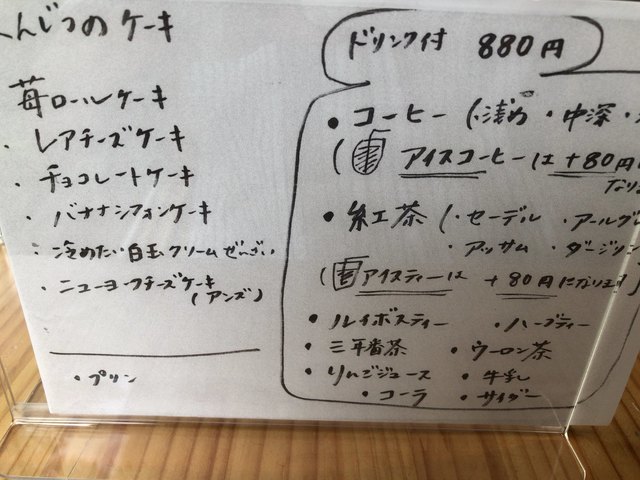 んじつのケーキ
苺ロールケーキ
・レアチーズケーキ
・チョコレートケーキ
・バナナシフォンケーキ
・冷めたい白玉クリームぜんざい
・ニューヨークチーズケーキ
(アンズ)
・プリン
ドリンク付 880円
・コーヒー (・浅め ・中深・
(アイスコーヒーは+80円
なりま
・紅茶 (・セーデル ・アールグ
・アッサム ・ダージリン
(アイスティーは +80円になります)
・ルイボスティー ・ハーブティー
・三年番茶 ・ウーロン茶
・りんごジュース ・牛乳
・コーラ ・サイダー